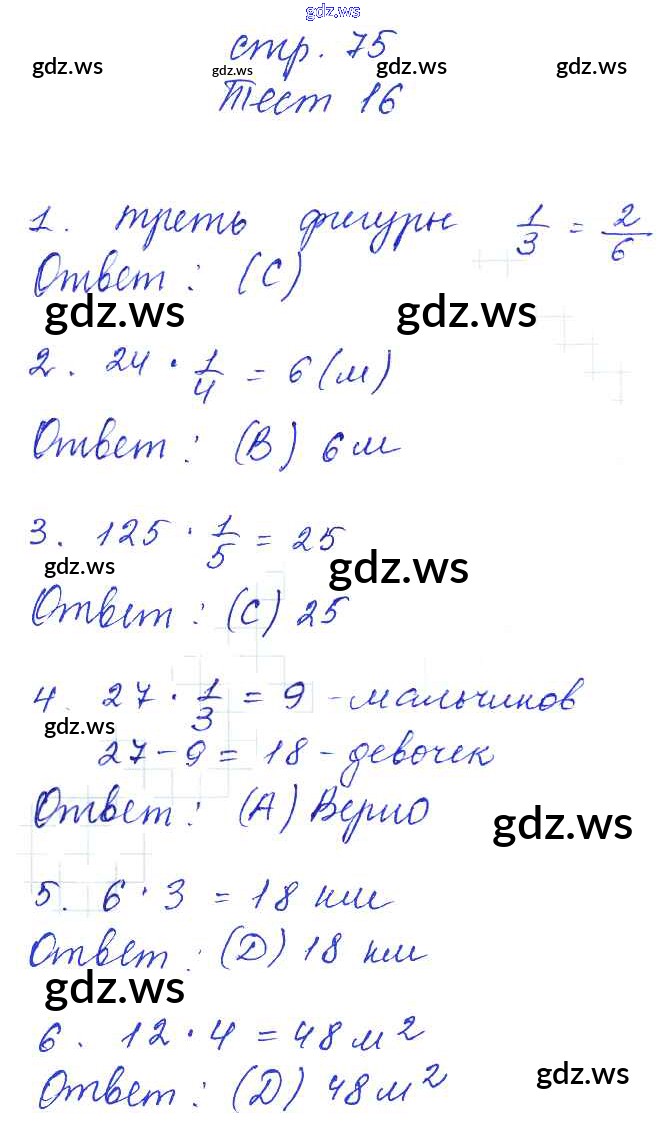 gdz.ws
стр. 75
gdz.ws gdz.ws gdz.ws gdz.ws
Тест 16
1. треть фигуры 1/3 = 2/6
Ответ: (С)
gdz.ws gdz.ws
2. 24 · 1/4 = 6 (м)
Ответ: (В) 6 м
3. 125 · 1/5 = 25
gdz.ws gdz.ws
Ответ: (С) 25
4. 27 · 1/3 = 9 - мальчиков
gdz.ws
27 - 9 = 18 - девочек
Ответ: (А) Верно
gdz.ws
5. 6 · 3 = 18 км
Ответ: (D) 18 км
gdz.ws
6. 12 · 4 = 48 м²
Ответ: (D) 48 м²
gdz.ws